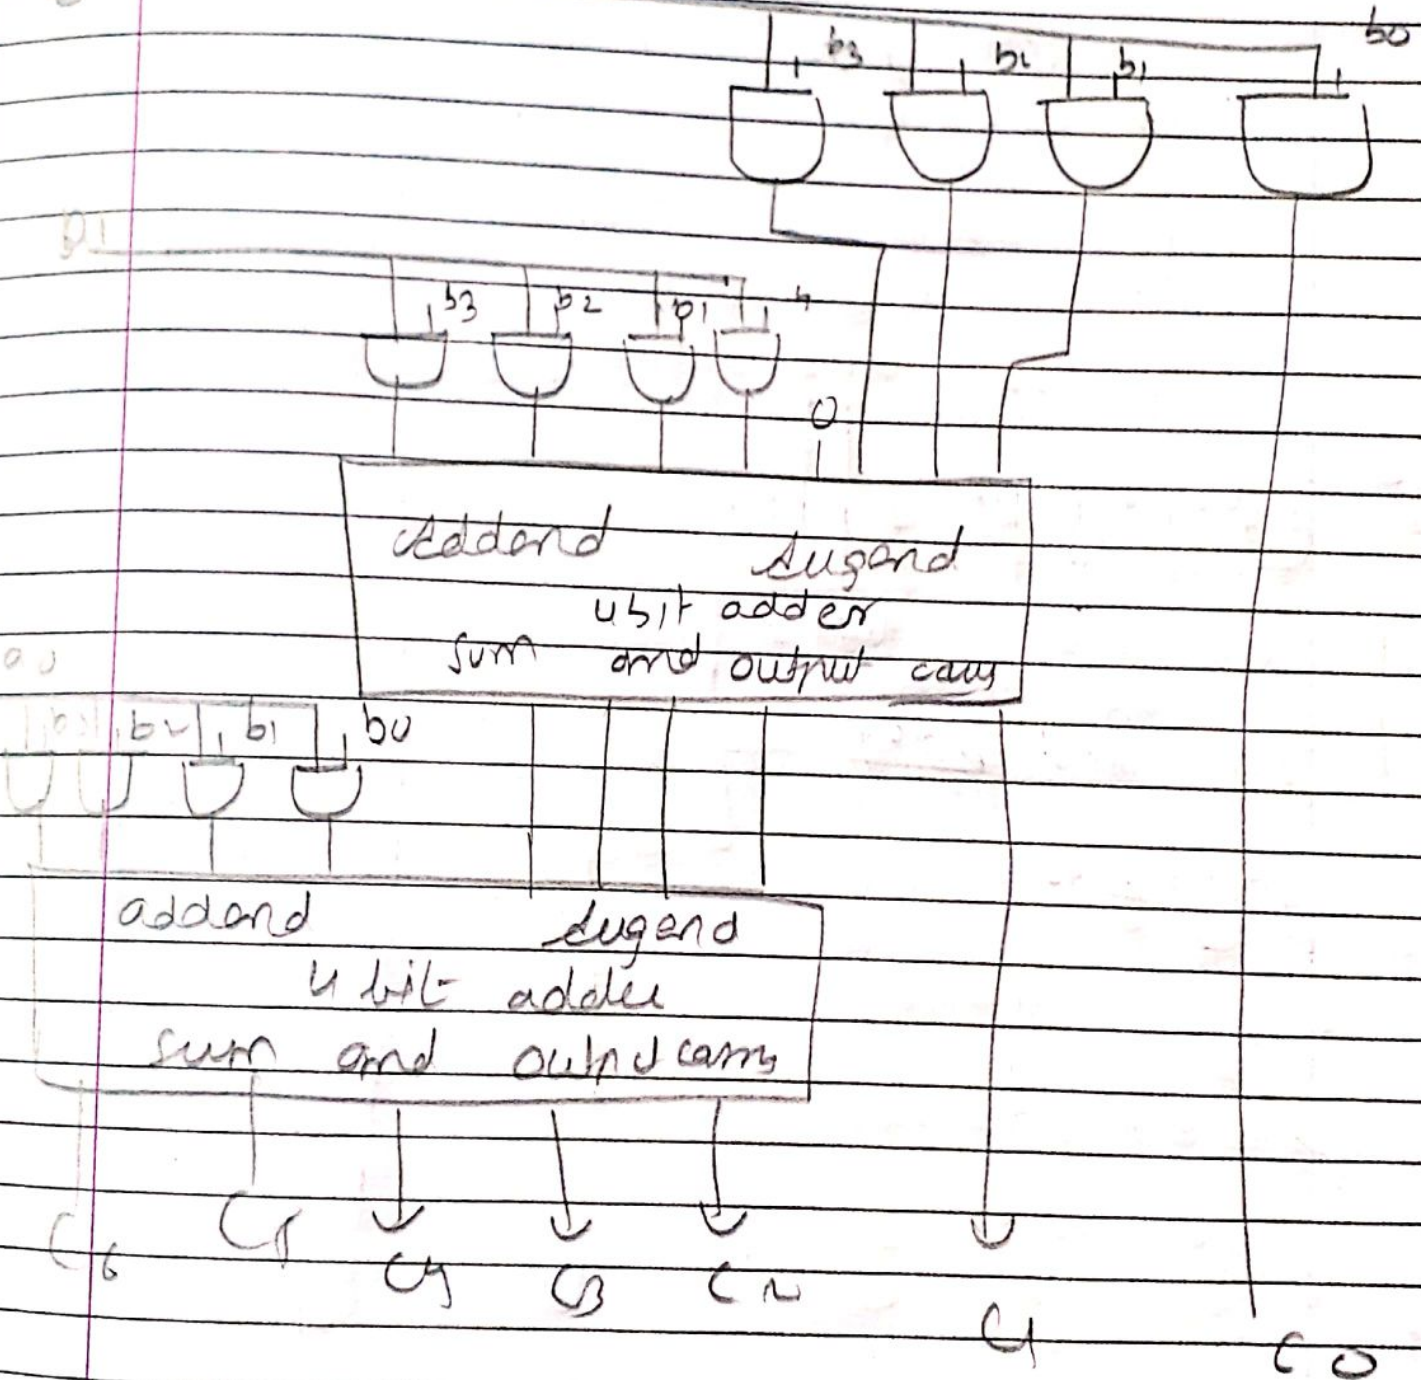 b0
b3 b2 b1
b3 b2 b1
0
Addend Augend
4 bit adder
sum and output carry
b2 b1 b0
addend Augend
4 bit adder
sum and output carry
C6 C5 C4 C3 C2
C1 C0